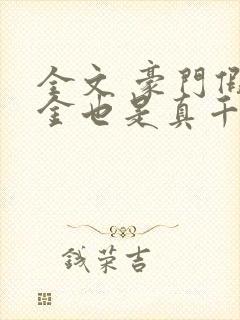 全文 豪門假
金也是真千
钱荣吉